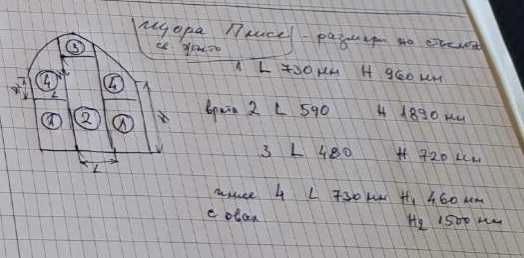 щора Плисе - размери по стъкло
1 L 730 мм H 960 мм
врата 2 L 590 H 1890 мм
3 L 480 H 720 мм
плисе 4 L 730 мм H1 460 мм
с овал H2 1500 мм
3
4 4
1 2 1
H L H
L